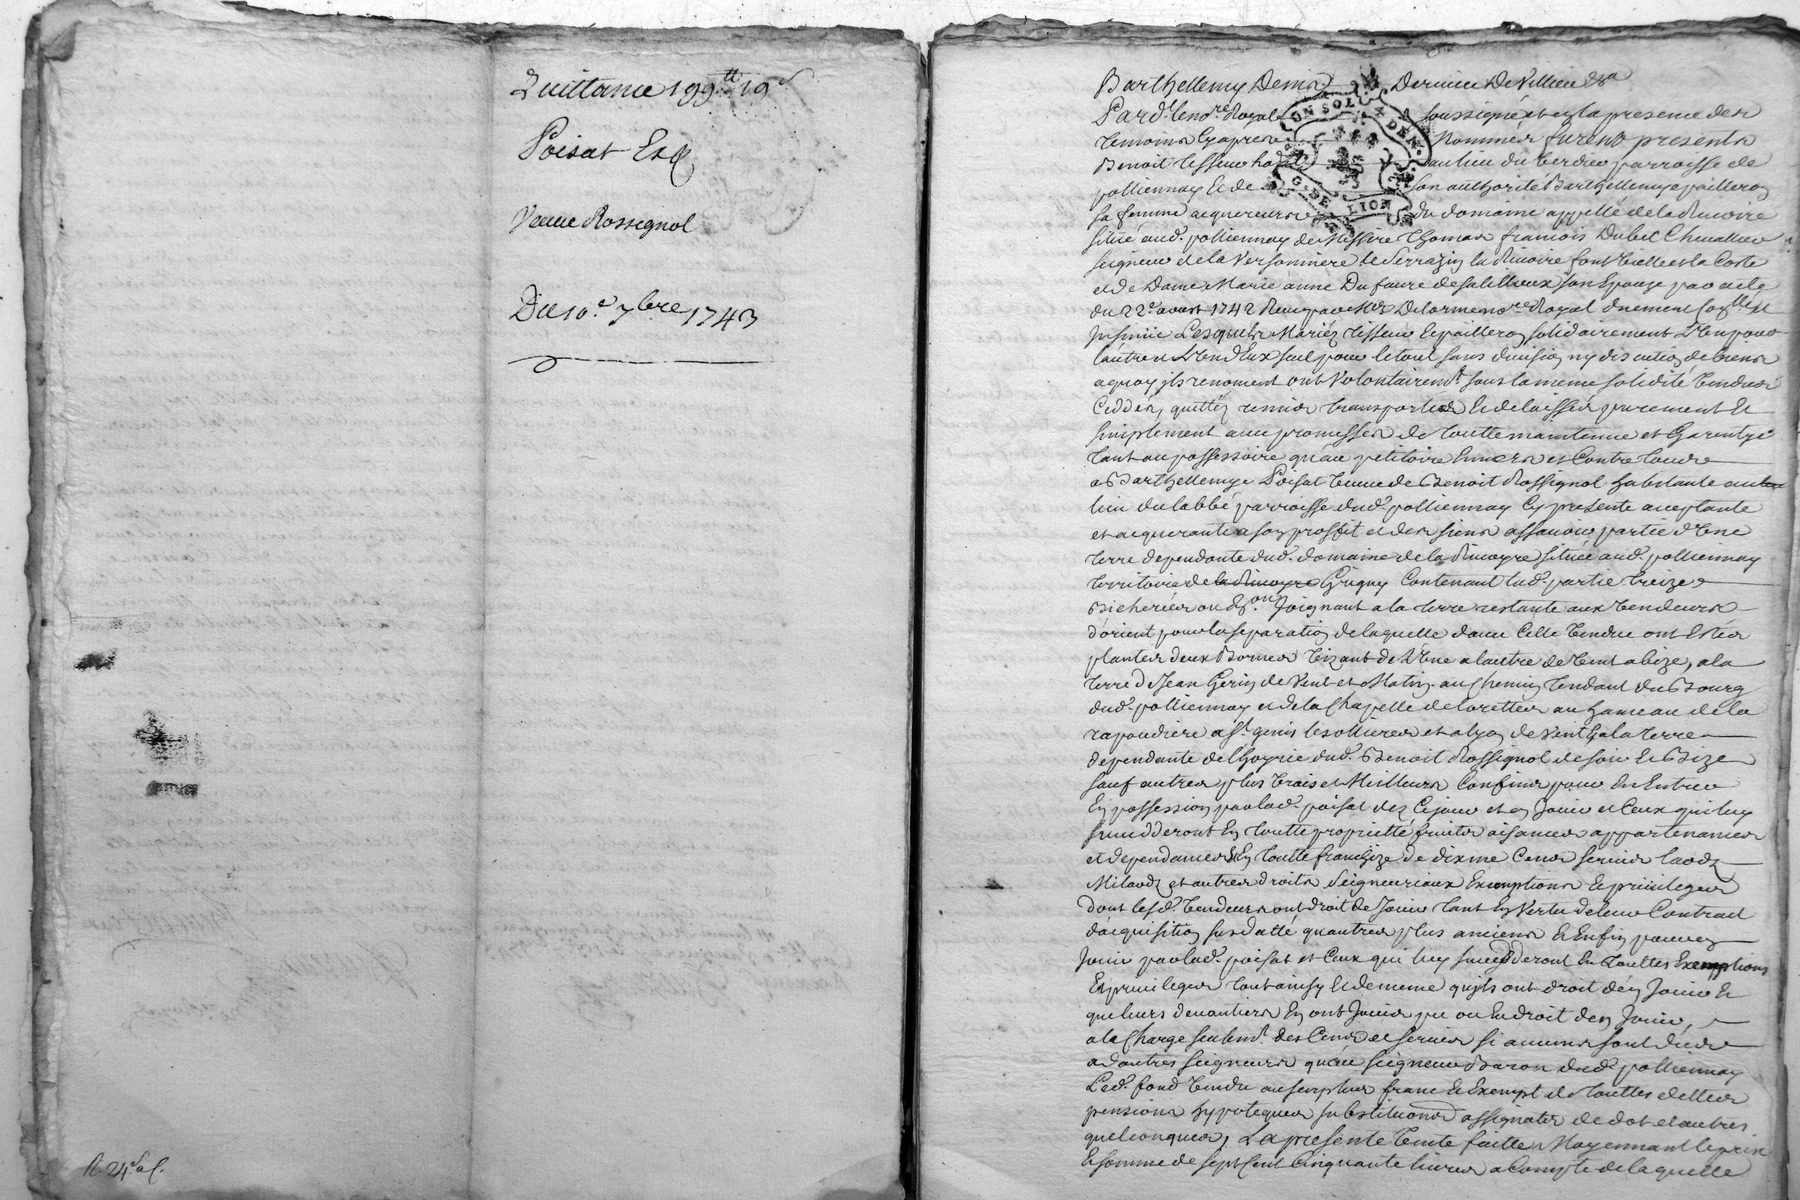 Quittance 199ᵗᵗ 19ˢ
Poisat Exp
Veuve Rossignol
Du 10.ᵉ 7bre 1743
R. 24ˢ
Barthellemy Denis
Pard.ᵗ Royal soussigné et en la presence des
temoins cy apres nommés furent presents
Benoit Tisseur au lieu du Verdier parroisse de
polliennay et de son authorité Barthellemye pailleron
sa femme acquereurs du domaine appellé de la Rivoire
situé aud. polliennay de Messire Thomas francois Dubel Chevallier
seigneur de la Versonniere le Serrazin la Rivoire et la Coste
et de Dame Marie anne Du faure de son Epouze par acte
du 22ᵉ aoust 1742 Receu par Mᵉ Delorme noʳᵉ Royal duement Coⁿˡˡᵉ et
Insinué Lesquels Mariés Tisseur et pailleron solidairement L'un pour
l'autre et L'un d'Eux seul pour le tout sans division ny discution de biens
a quoy ils renoncent ont Volontairemᵗ sous la meme solidité Vendus
Ceddés, quittés remis transportés et delaissés purement et
simplement avec promesses de toutte maintenue et Garentye
tant au possessoire qu'au petitoire Envers et Contre tous
a Barthellemye Poisat veuve de Benoit Rossignol habitante au
lieu du labbé parroisse dud. polliennay Cy presente acceptante
et acquerante a son proffit et des siens assavoir partie d'Une
terre dependante dud. domaine de la Rivoyre située aud. polliennay
territoire de la Rivoyre Grigny Contenant lad. partie treize
Bicherées ou Eⁿᵒⁿ Joignant a la terre restante aux Vendeurs
d'orient pour la separation de laquelle d'avec Celle Vendue ont Estés
plantés deux Bornes Vizant de L'Une a l'autre de Vent a bize, a la
terre de Jean Gerin de Vent et Matin au Chemin tendant du Bourg
dud. polliennay et de la Chapelle de lorettes au hameau de la
rapaudiere a Sᵗ genis les ollieres et a lyon de Vent & a la terre
dependante de l'hoyrie dud. Benoit Rossignol de soir et Bize
sauf autres plus Vrais et Meilleurs Confins pour En Entrer
En possession par lad. poisat dez Ce jour et en Jouir et Ceux qui luy
succedderont En toutte proprietté fruits aisances appartenances
et dependances & En toutte franchize de dixme Cens servis laods
Milaods et autres droits Seigneuriaux Exemptions et privileges
dont lesd. Vendeurs ont droit de Jouir tant En Vertu de leur Contract
d'acquisition susdatté qu'autres plus anciens Et Enfin pouvez
Jouir par lad. poisat et Ceux qui luy succedderont En touttes Exemptions
Et privileges tout ainsy Et de meme qu'ils ont droit d'en Jouir Et
que leurs devantiers En ont Jouis pu ou Eu droit d'en Jouir,
a la Charge seulemᵗ. des Cens et servis si aucuns sont dues
a d'autres seigneurs qu'au seigneur Baron dud. polliennay
Led. fond Vendu au surplus franc et Exempt de touttes dettes
pensions hypoteques substitutions assignats de dot et autres
quelconques, La presente Vente faitte Moyennant le prix
Et somme de sept Cent Cinquante livres a Compte de laquelle